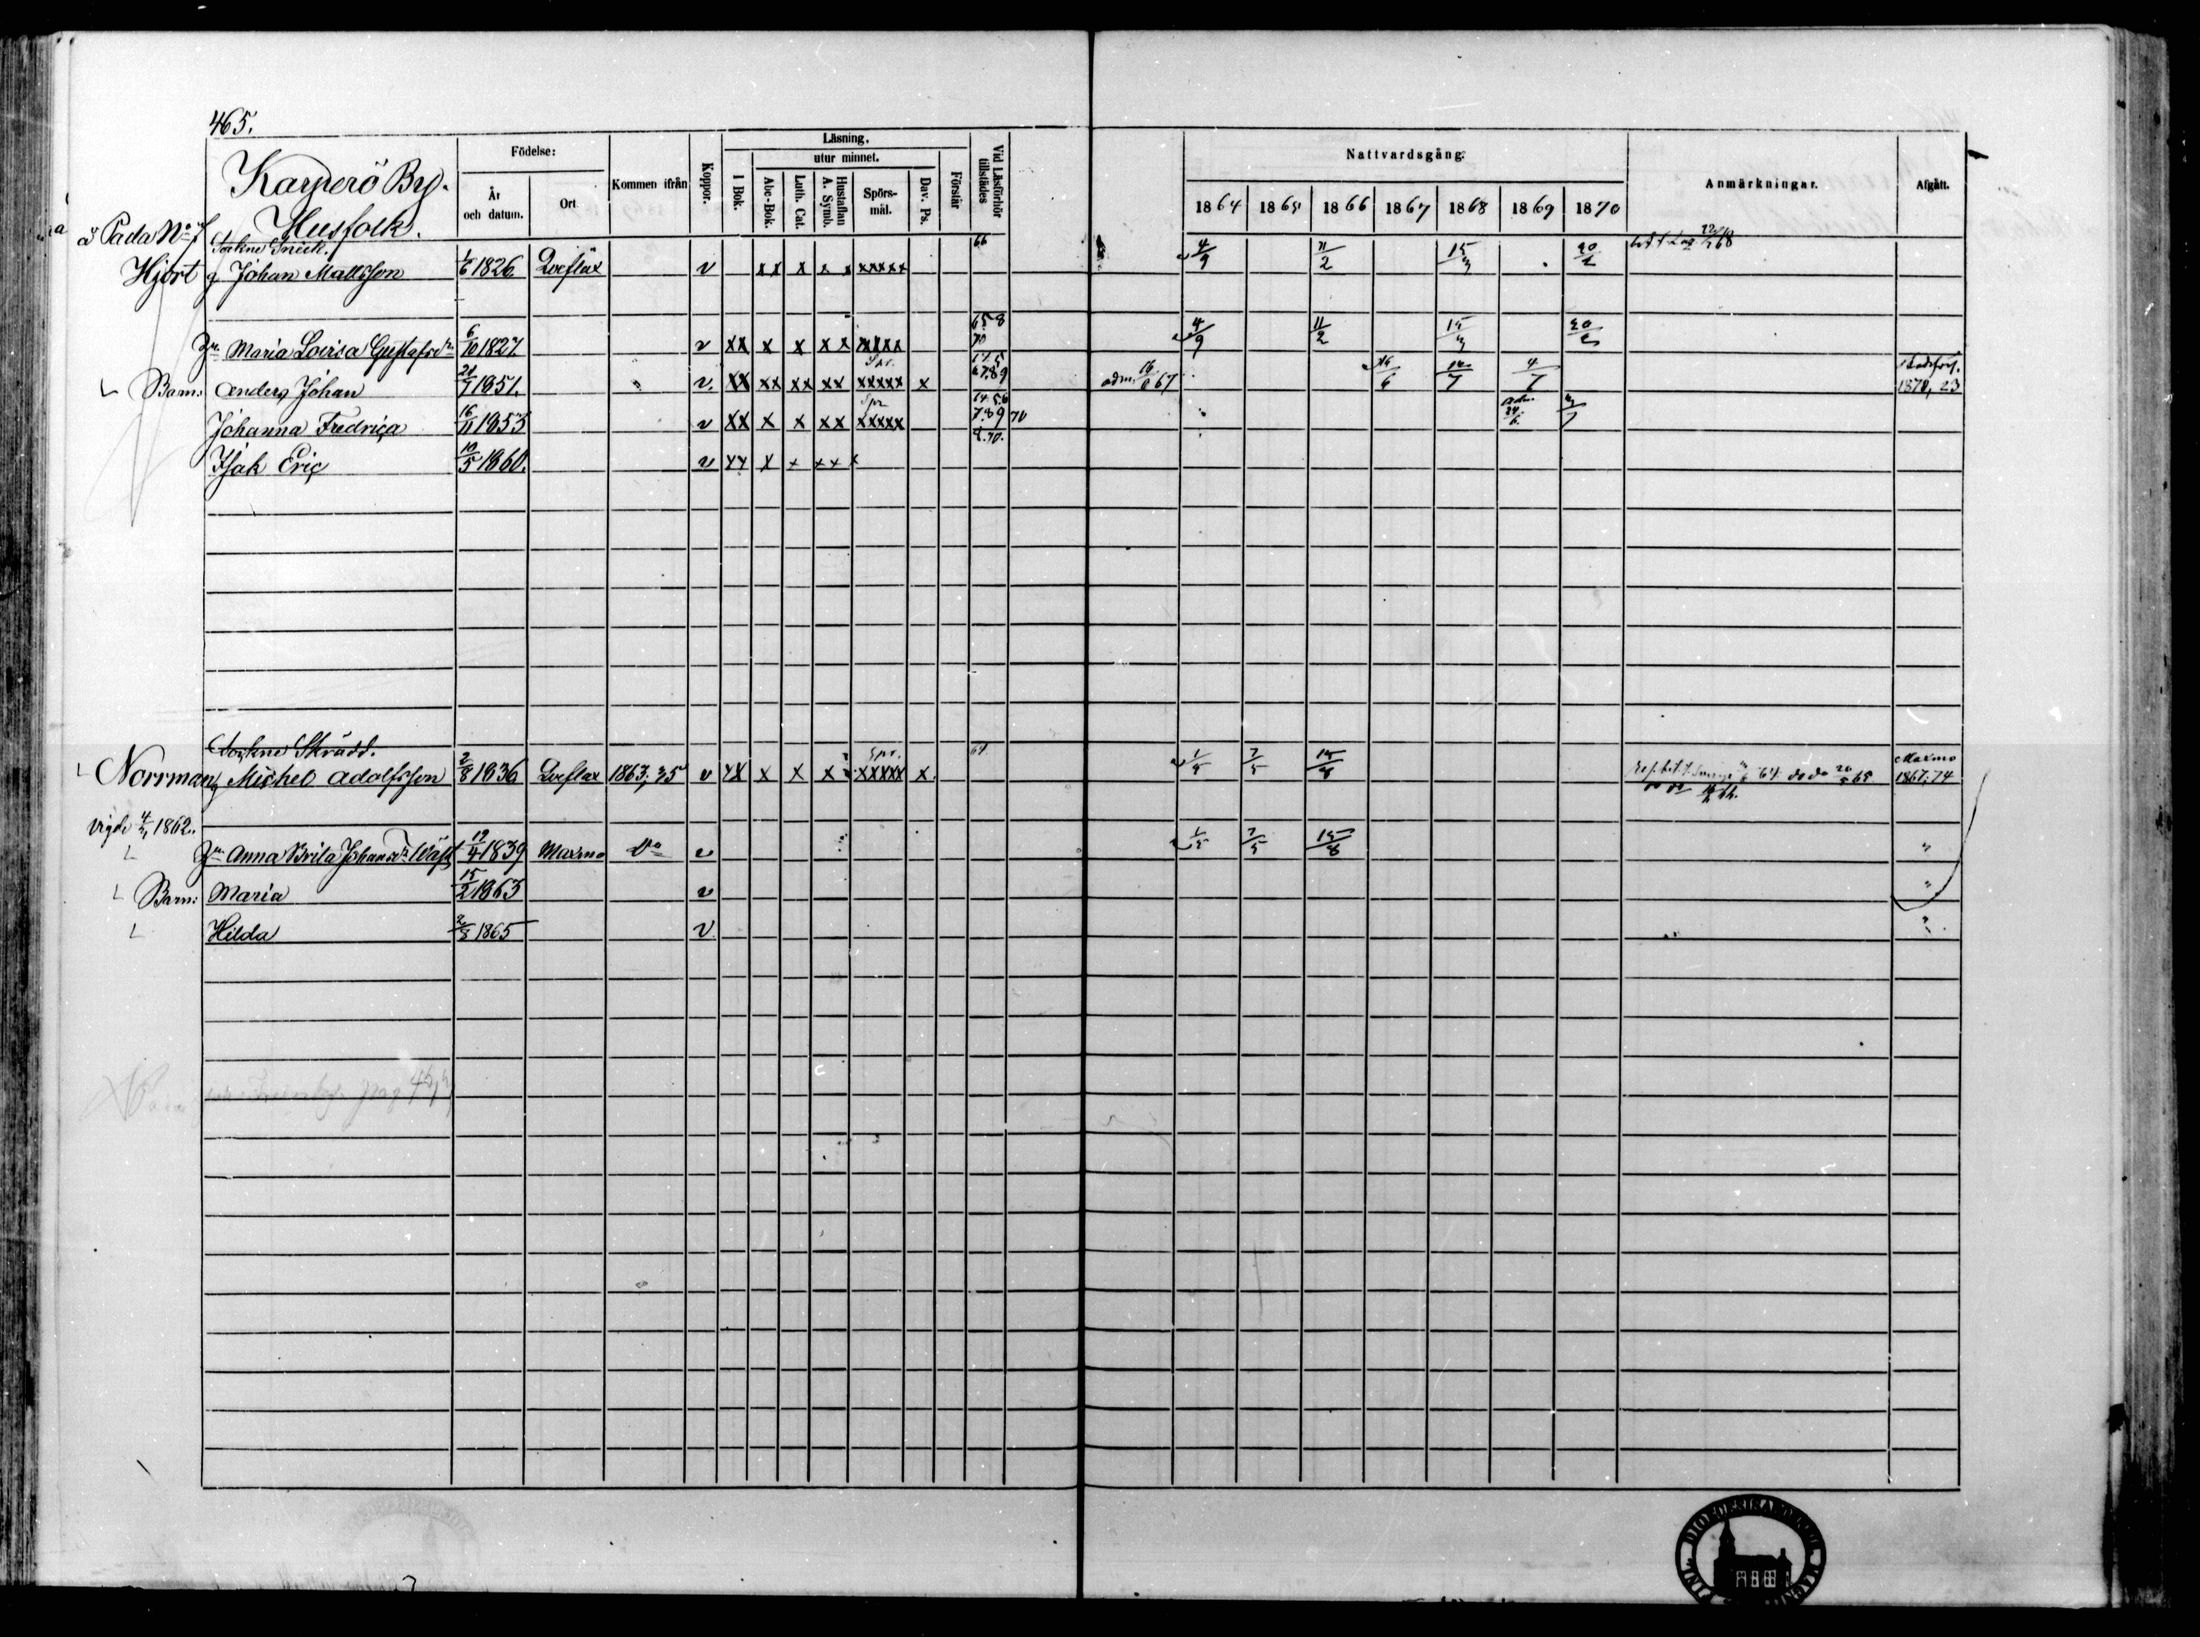 465.
Karperö By.
Husfolk.
Födelse:
År och datum.
Ort
Kommen ifrån
Koppor.
Läsning,
I Bok.
utur minnet.
Abc-Bok.
Luth. Cat.
Hustaflan A. Symb.
Spörsmål.
Dav. Ps.
Förstår
Vid Läsförhör tillstädes
Nattvardsgång.
1864 1865 1866 1867 1868 1869 1870
Anmärkningar.
Afgått.
å Pada No 7
Sockne Snick. 66
Hjort g Johan Mattsson 1/6 1826 Qveflax v xx x x x xxxxx 4/9 11/2 15/3 20/2
Hu Maria Lovisa Gustafsdr 6/10 1827 v xx x x xx xxxxx 65.8 70 4/9 11/2 15/3 20/2
Barn: Anders Johan 21/7 1851. v. xx xx xx xx Spr. xxxxx x 6789 adm. 16/6 67 16/6 12/7 4/7 1870, 23
Johanna Fredrica 16/11 1853 v xx x x xx Spr xxxxx 7.89 70 adm. 24/6 3/7
Isak Eric 10/5 1860. v xx x x xx x 8.70.
Sockne Skrädd.
Norrman g Michel Adolfsson 2/8 1836 Qveflax 1863; 35 v xx x x x Spr. xxxxx x 64 1/5 7/5 15/8 Maxmo 1867; 74
vigde 4/2 1862.
Hu Anna Brita Johansdr Wäst 19/4 1839 Maxmo Do v 1/5 7/5 15/8 "
Barn: Maria 15/2 1863 v "
Hilda 2/3 1865 v "